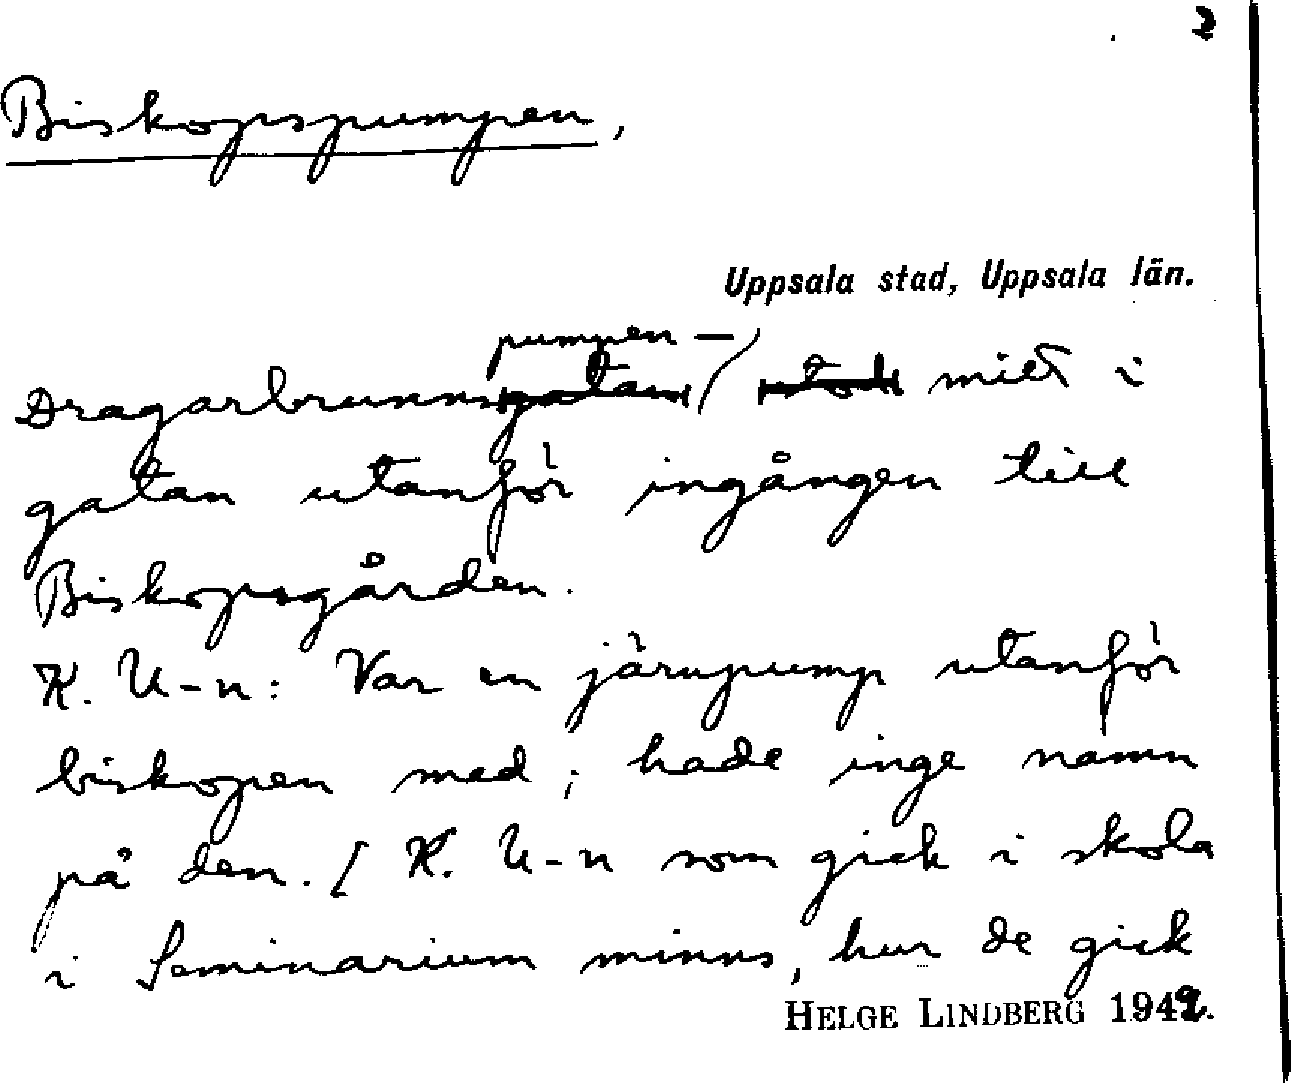 2
Biskopspumpen,
Uppsala stad, Uppsala län.
pumpen –
Dragarbrunnsgatan / stod mitt i
gatan utanför ingången till
Biskopsgården.
K. U-n: Var en järnpump utanför
biskopen med; hade inge namn
på den. [ K. U-n som gick i skola
i Seminarium minns, hur de gick
HELGE LINDBERG 1942.